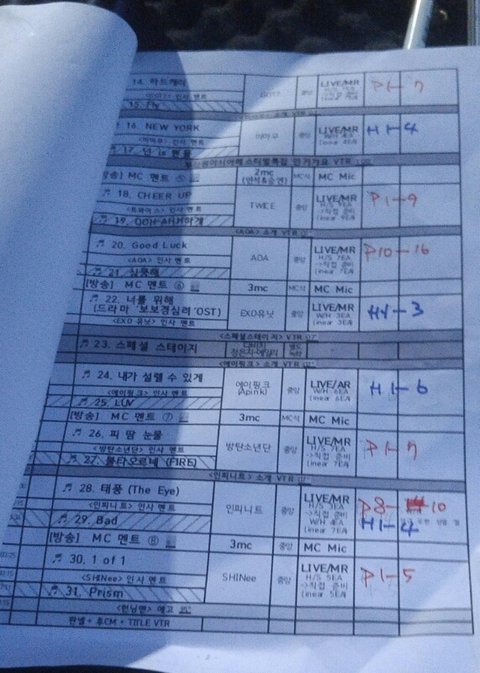 14. 하드캐리 GOT7 중앙 LIVE/MR P1-7
인사 멘트
15. Fly
소개 VTR
16. NEW YORK 마마무 중앙 LIVE/MR H1-4
<마마무> 인사 멘트
17.
VTR
[방송] MC 멘트 2mc MC석 MC Mic
18. CHEER UP TWICE 중앙 LIVE/MR P1-9
<트와이스> 인사 멘트 H/S 9EA
19. OOH-AHH하게
<AOA> 소개 VTR
20. Good Luck AOA 중앙 LIVE/MR P10-16
H/S 7EA
<AOA> 인사 멘트 ->직접 준비
21. 심쿵해 (inear 7EA)
[방송] MC 멘트 ⑥ 3mc MC석 MC Mic
22. 너를 위해 EXO유닛 중앙 LIVE/MR H1-3
(드라마 '보보경심려'OST) W/H 3EA
<EXO 유닛> 인사 멘트 (inear 3EA)
<스페셜스테이지> VTR
23. 스페셜 스테이지
<에이핑크> 소개 VTR
24. 내가 설렐 수 있게 에이핑크 중앙 LIVE/AR H1-6
(Apink) W/H 6EA
<에이핑크> 인사 멘트 (inear 6EA)
25. LUV
[방송] MC 멘트 ⑦ 3mc MC석 MC Mic
26. 피 땀 눈물 방탄소년단 중앙 LIVE/MR P1-7
H/S 7EA
<방탄소년단> 인사 멘트 ->직접 준비
27. 불타오르네 (FIRE) (inear 7EA)
<인피니트> 소개 VTR
28. 태풍 (The Eye) 인피니트 중앙 LIVE/MR P8-10
H/S 3EA
<인피니트> 인사 멘트 ->직접 준비
29. Bad W/H 4EA H1-4
(inear 7EA)
[방송] MC 멘트 ⑧ 3mc 중앙 MC Mic
30. 1 of 1 SHINee 중앙 LIVE/MR P1-5
H/S 5EA
<SHINee> 인사 멘트 ->직접 준비
31. Prism (inear 5EA)
<런닝맨> 예고
판넬 + 후CM + TITLE VTR